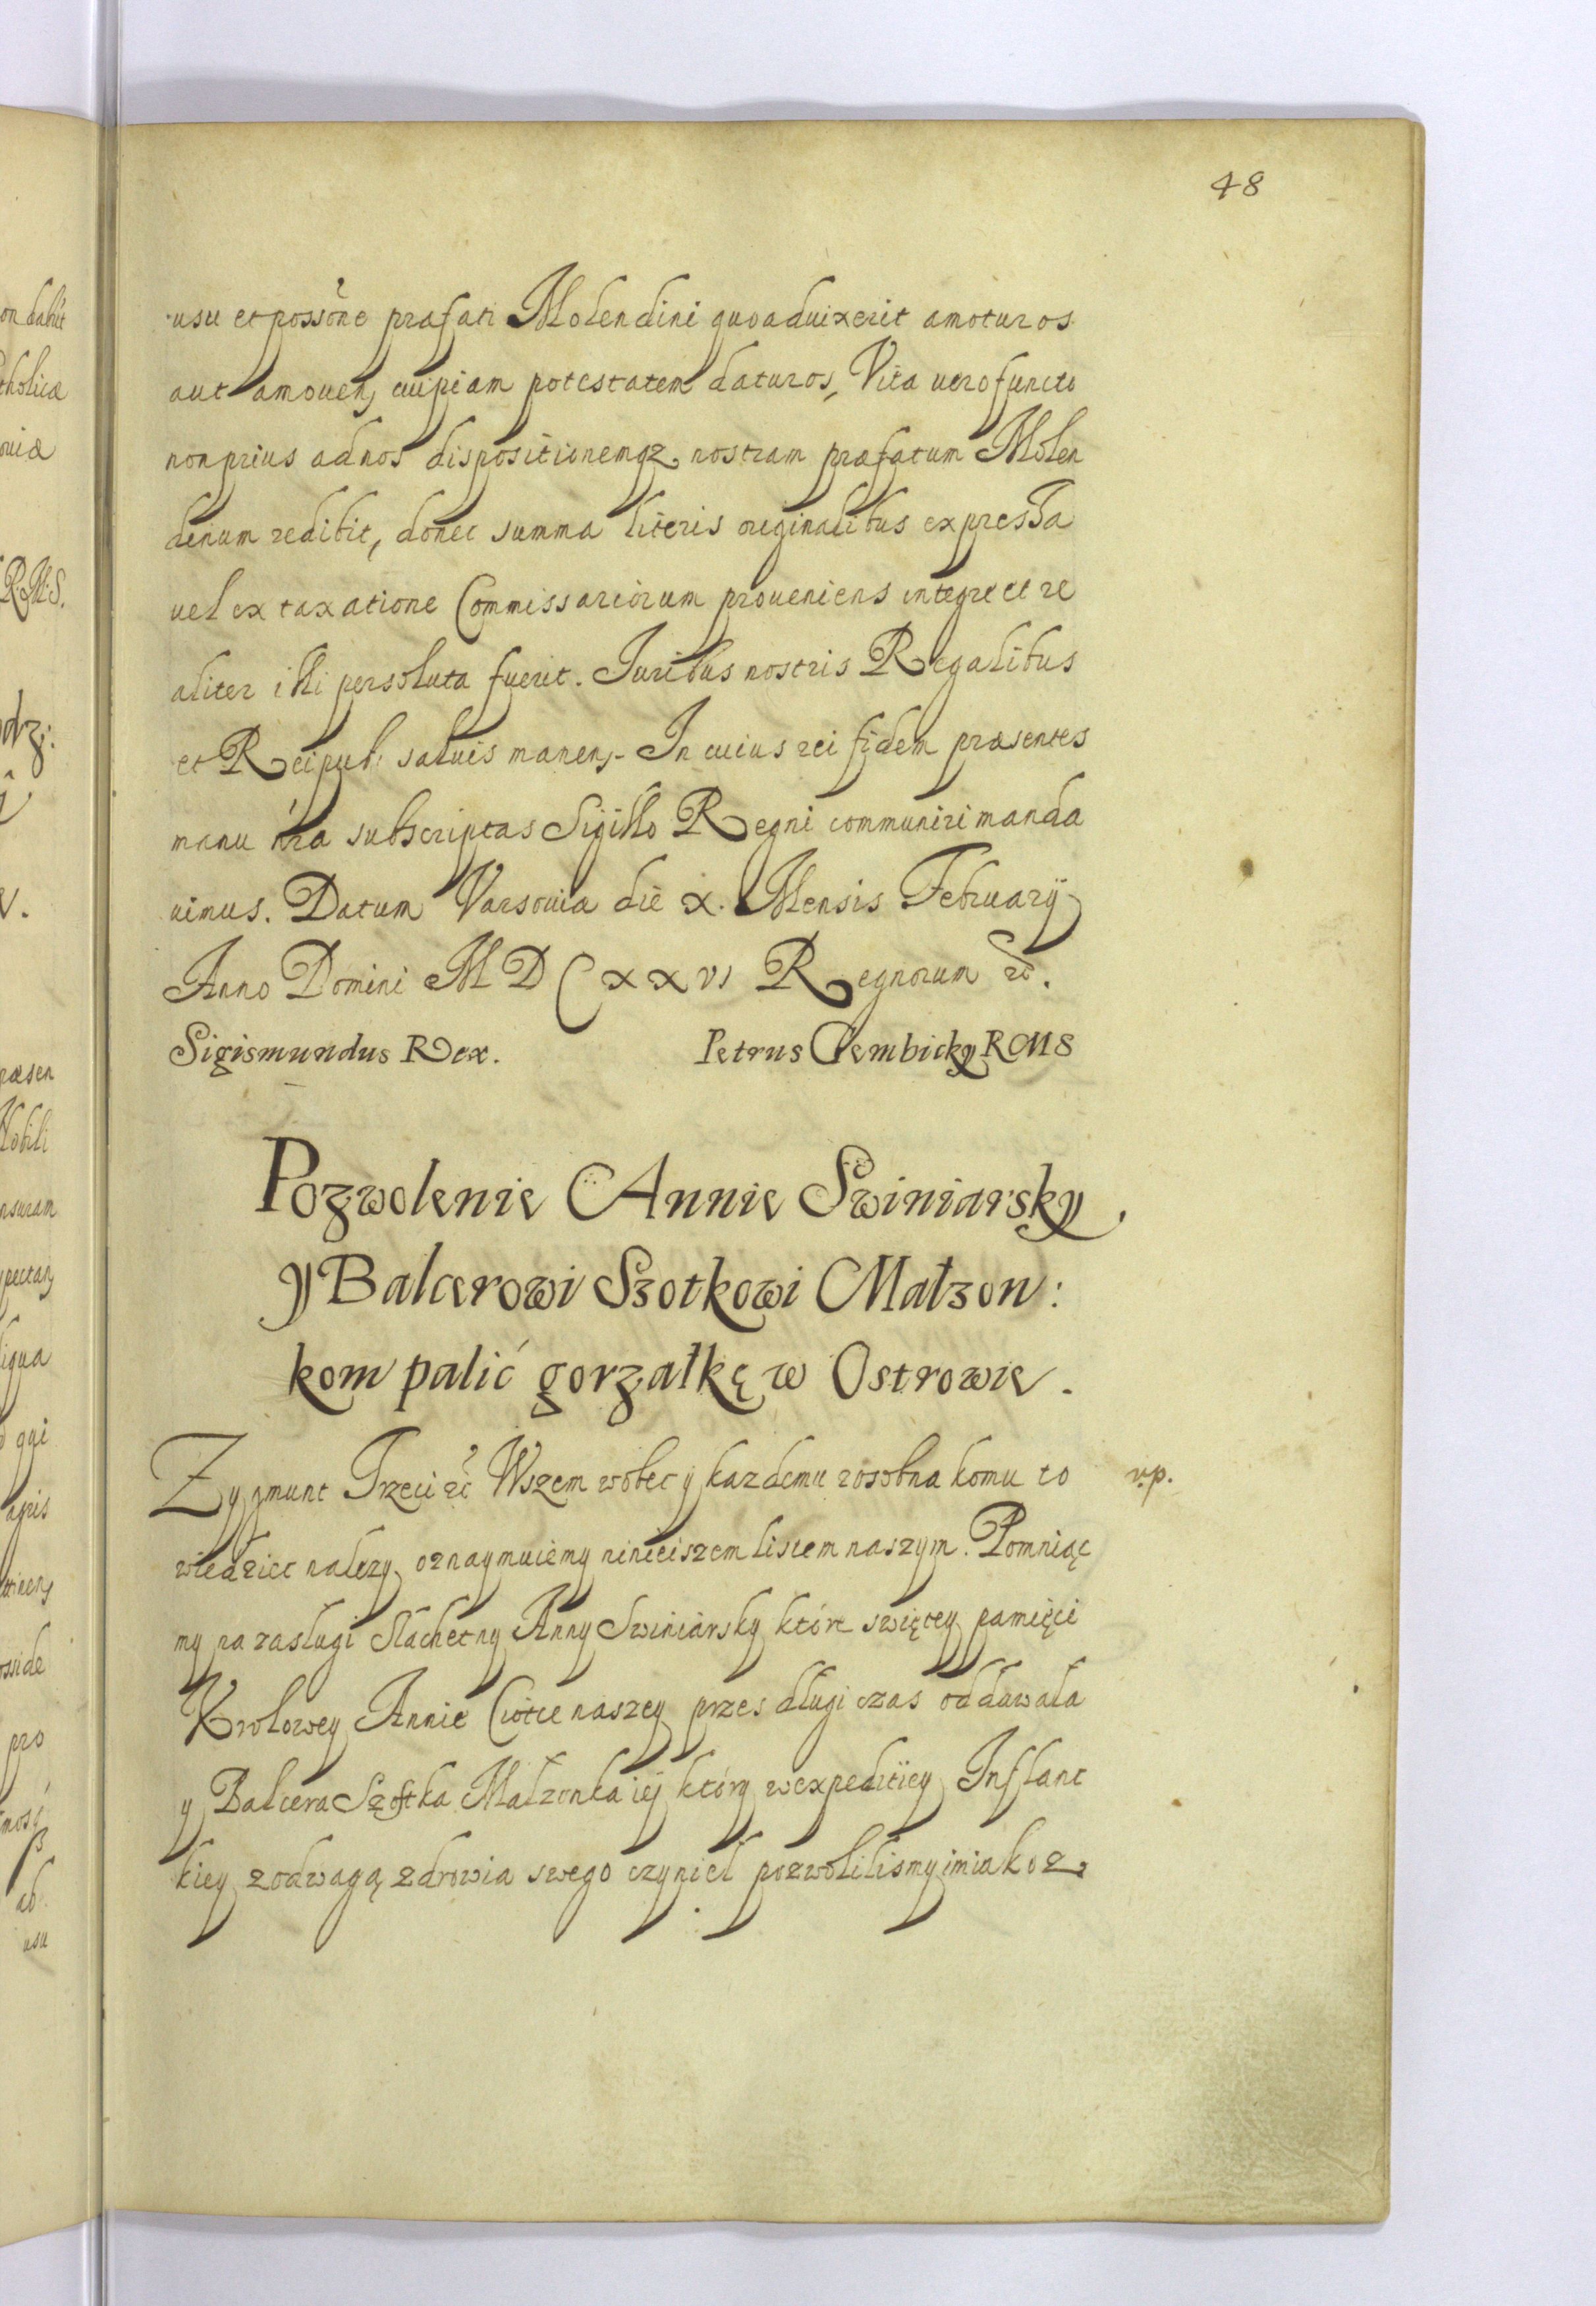 48
usu et possõne præfati Molendini quoaduixerit amoturos
aut amouen, cuipiam potestatem daturos, Vita uero functo
non prius ad nos dispositionemqz nostram præfatum Molen
dinum redibit, donec summa literis originalibus expressa
uel ex taxatione Commissariorum proueniens integre et re
aliter illi persoluta fuerit. Iuribus nostris Regalibus
et Reipub: saluis manen,. In cuius rei fidem præsentes
manu nra subscriptas Sigillo Regni communiri manda
uimus. Datum Varsouiæ die X. Mensis February
Anno Domini MDCXXVI Regnorum etc.
Sigismundus Rex. Petrus Gembicky RMS
Pozwolenie Annie Swiniarsky,
y Balcerowi Szotkowi Małzon:
kom palić gorzałkę w Ostrowie.
Zygmunt Trzeci etc Wszem wobec y kazdemu zosobna komu to
wiedziec nalezy, oznaymuiemy ninieiszem listem naszym. Pomniąc
my na zaslugi Slachetny Anny Swiniarsky które swiętey pamięci
Krolowey Annie Ciotce naszey przes długi czas oddawała
y Balcera Szostka Małzonka iey który w expeditiey Inflant
kiey z odwagą zdrowia swego czynieł pozwolilismy im iakoz
on dabit
tholicæ
ouiæ
RMS.
præsen
Nobili
nsuram
liqua
apis
osside
pro
ab
usu